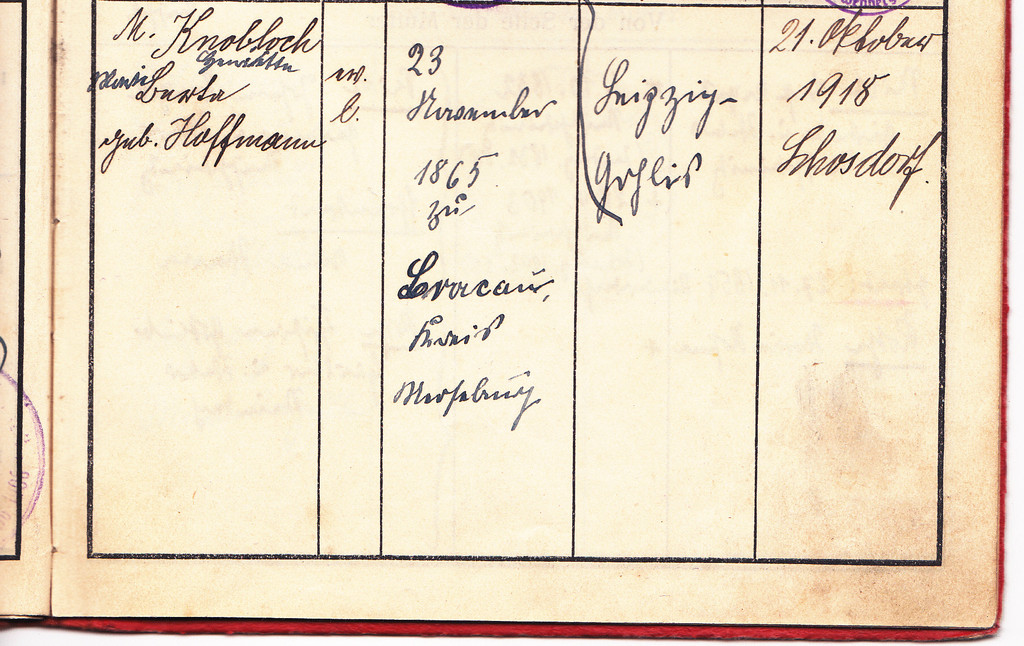 M. Knobloch
Henriette
Marie
Berta
geb. Hoffmann
ev.
l.
23
November
1865
zu
Cracau,
Kreis
Merseburg
Leipzig-
Gohlis
21. Oktober
1918
Schosdorf.